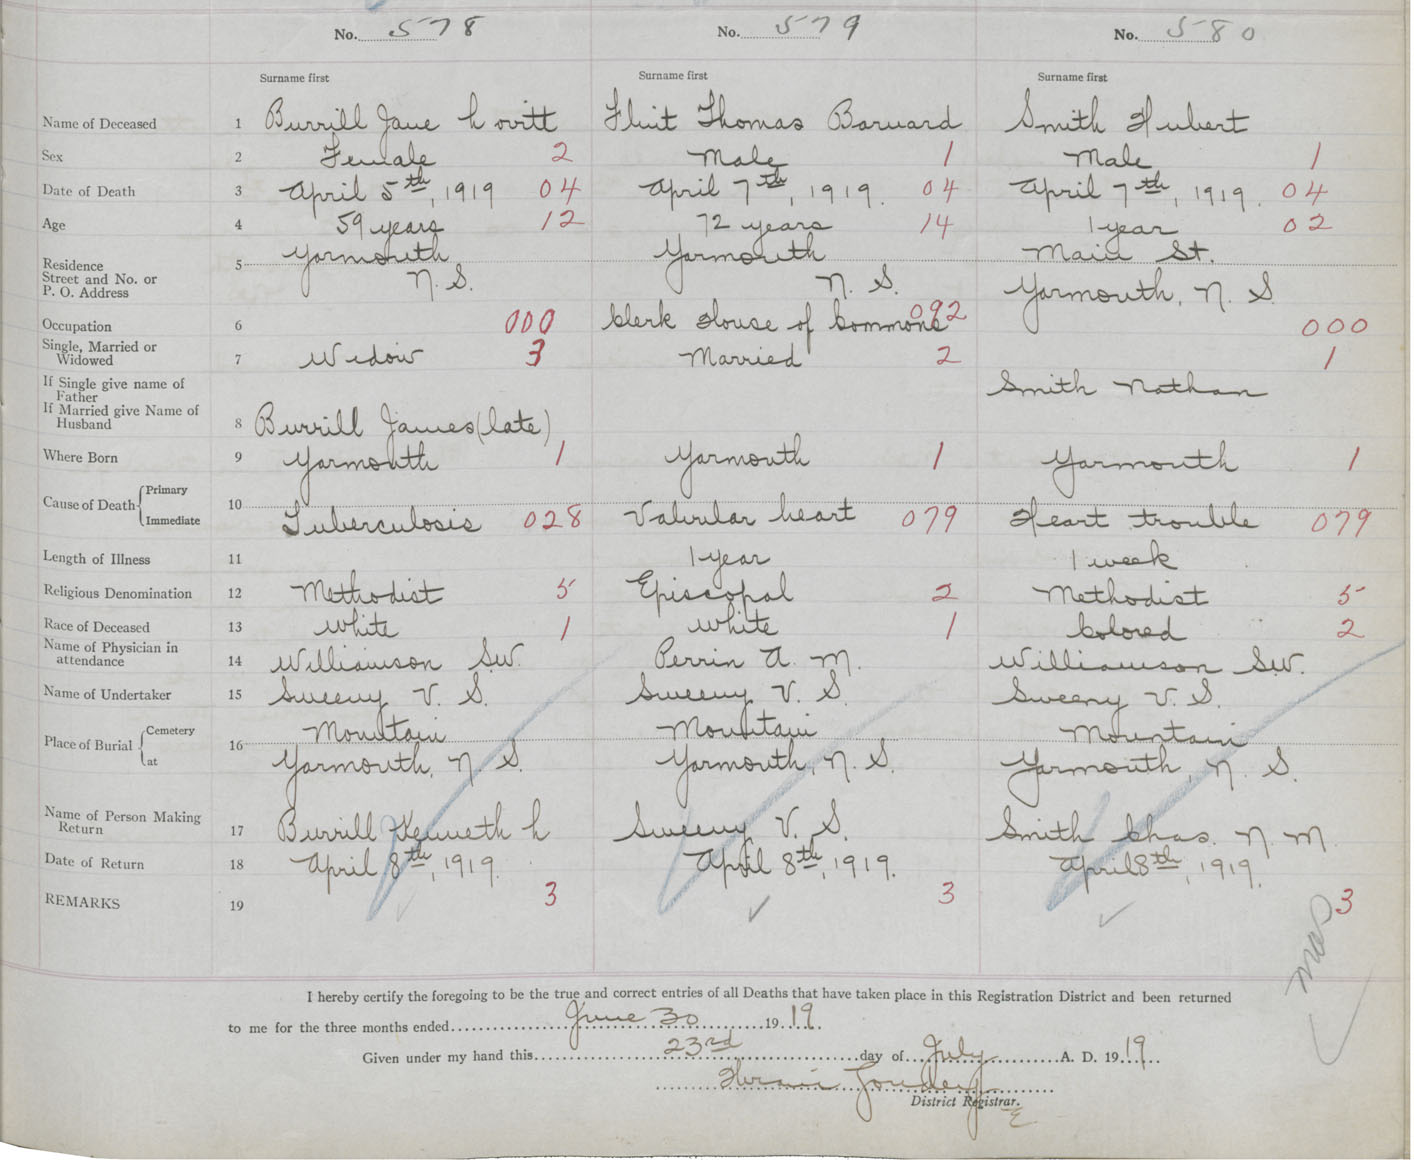 No. 578 No. 579 No. 580
Surname first Surname first Surname first
Name of Deceased 1 Burrill Jane Lovitt Flint Thomas Barnard Smith Hubert
Sex 2 Female 2 Male 1 Male 1
Date of Death 3 April 5th, 1919 04 April 7th, 1919. 04 April 7th, 1919. 04
Age 4 59 years 12 72 years 14 1 year 02
Residence
Street and No. or
P. O. Address 5 Yarmouth Yarmouth Main St.
N. S. N. S. Yarmouth, N. S.
Occupation 6 000 Clerk House of Commons 092 000
Single, Married or
Widowed 7 Widow 3 Married 2 1
If Single give name of
Father Smith Nathan
If Married give Name of
Husband 8 Burrill James (late)
Where Born 9 Yarmouth 1 Yarmouth 1 Yarmouth 1
Cause of Death Primary 10
Immediate Tuberculosis 028 Valvular heart 079 Heart trouble 079
Length of Illness 11 1 year 1 week
Religious Denomination 12 Methodist 5 Episcopal 2 Methodist 5
Race of Deceased 13 White 1 White 1 Colored 2
Name of Physician in
attendance 14 Williamson S.W. Perrin A. M. Williamson S.W.
Name of Undertaker 15 Sweeny V. S. Sweeny V. S. Sweeny V. S.
Place of Burial Cemetery 16 Mountain Mountain Mountain
at Yarmouth, N. S. Yarmouth, N. S. Yarmouth, N. S.
Name of Person Making
Return 17 Burrill Kenneth L Sweeny V. S. Smith Chas. N. M.
Date of Return 18 April 8th, 1919. April 8th, 1919. April 8th, 1919.
REMARKS 19 3 3 3
I hereby certify the foregoing to be the true and correct entries of all Deaths that have taken place in this Registration District and been returned
to me for the three months ended June 30 1919.
Given under my hand this 23rd day of July A. D. 1919
District Registrar.